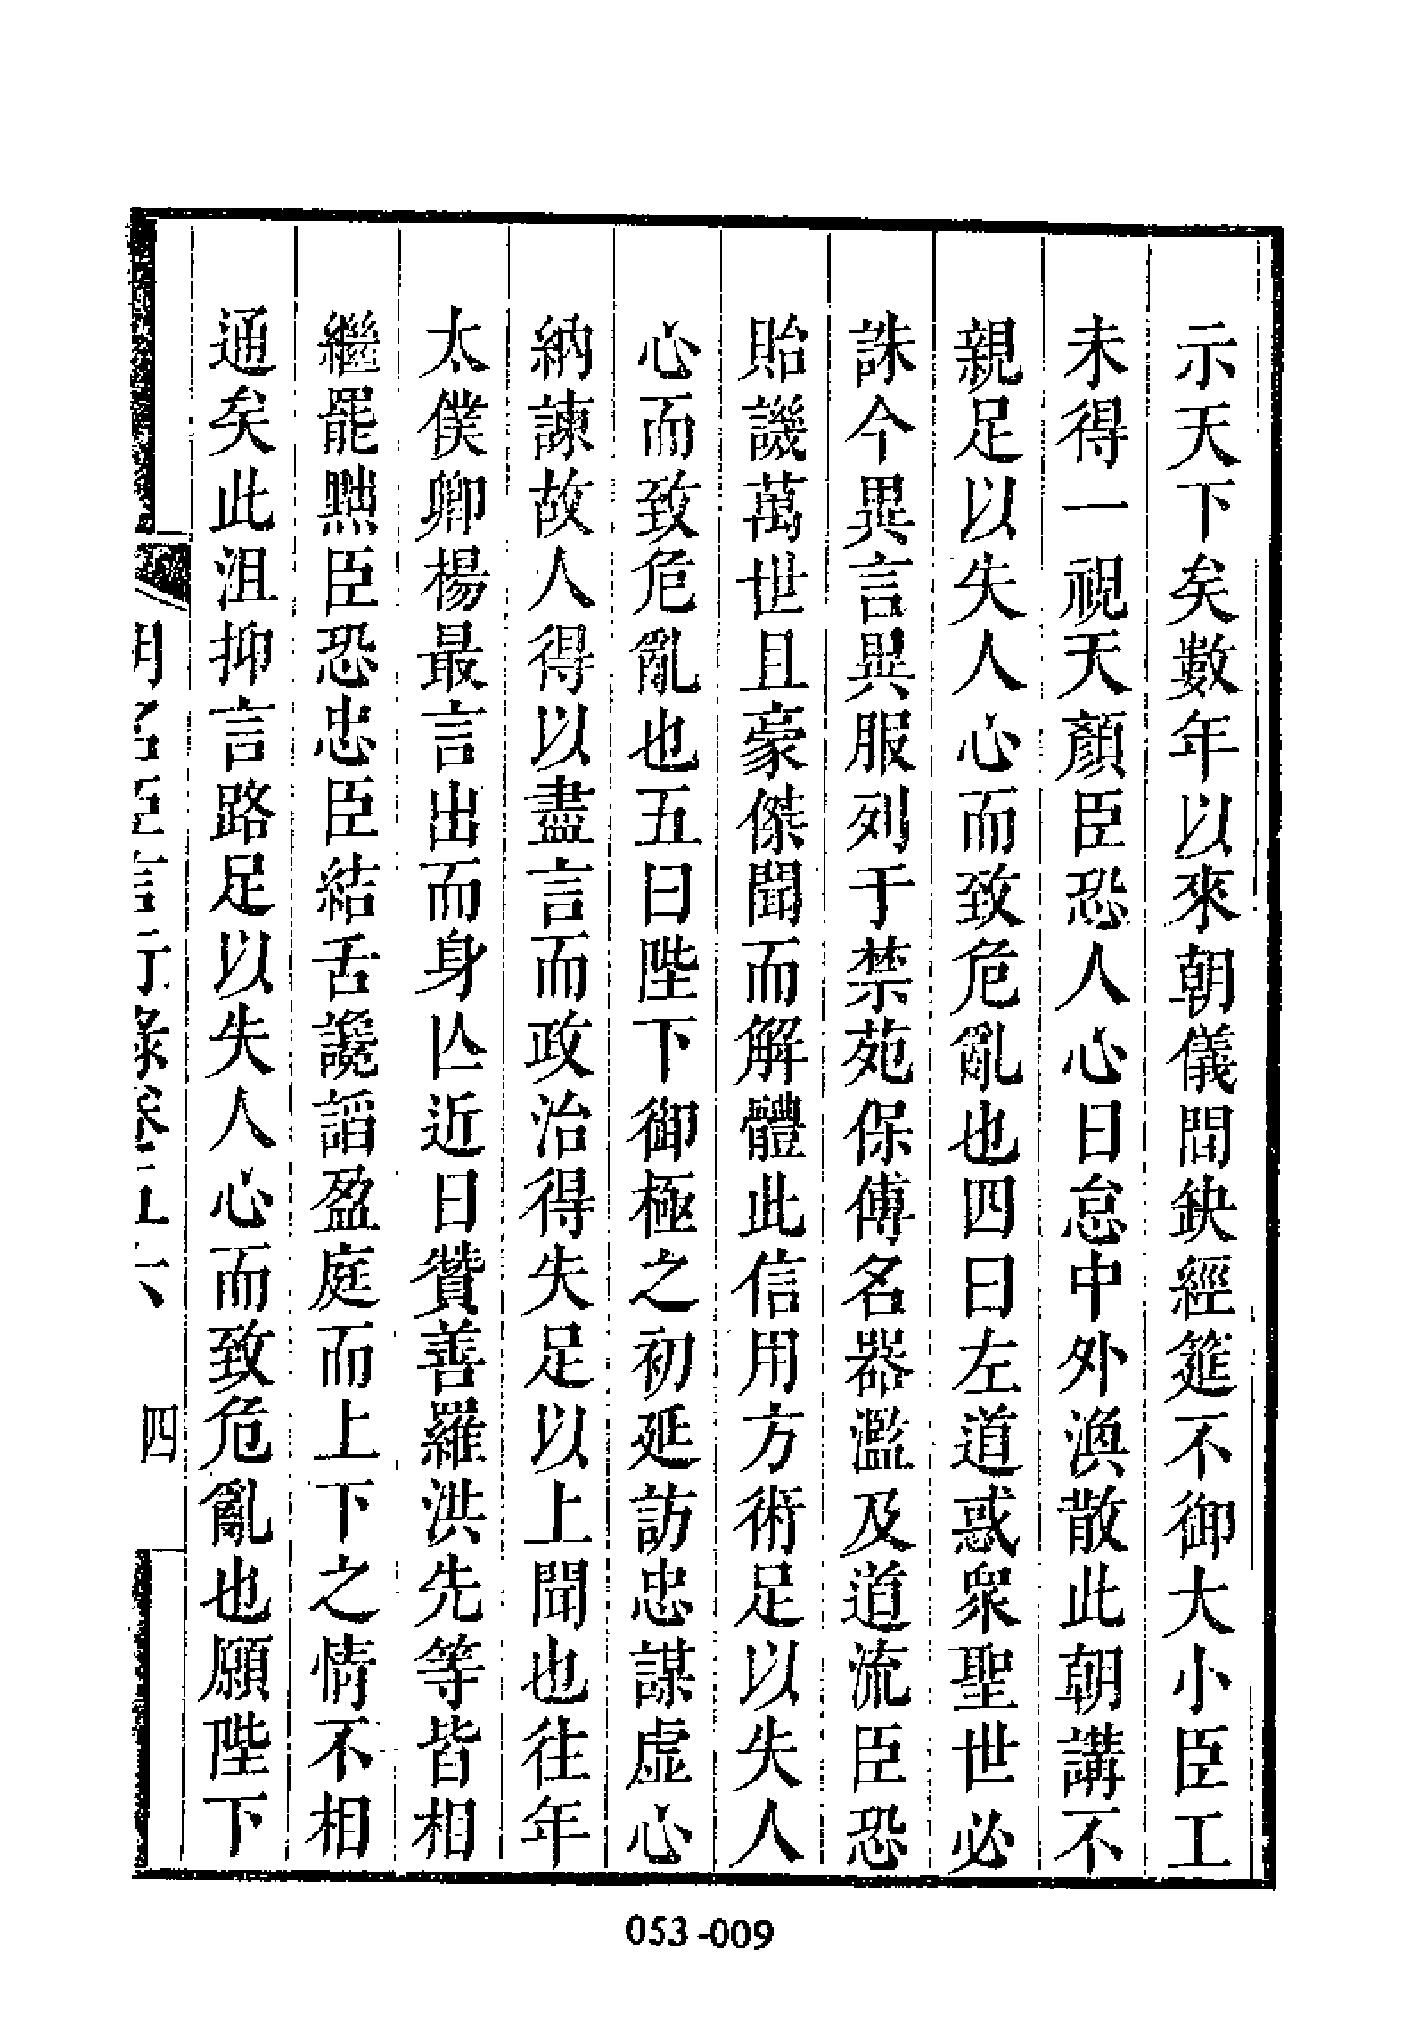 示天下矣數年以來朝儀間缺經筵不御大小臣工
未得一視天顏臣恐人心日怠中外渙散此朝講不
親足以失人心而致危亂也四曰左道惑衆聖世必
誅今異言異服列于禁苑保傅名器濫及道流臣恐
貽譏萬世且豪傑聞而解體此信用方術足以失人
心而致危亂也五曰陛下御極之初延訪忠謀虛心
納諫故人得以盡言而政治得失足以上聞也往年
太僕卿楊最言出而身亾近日贊善羅洪先等皆相
繼罷黜臣恐忠臣結舌讒謟盈庭而上下之情不相
通矣此沮抑言路足以失人心而致危亂也願陛下
明名臣言行錄卷五六 四
053-009